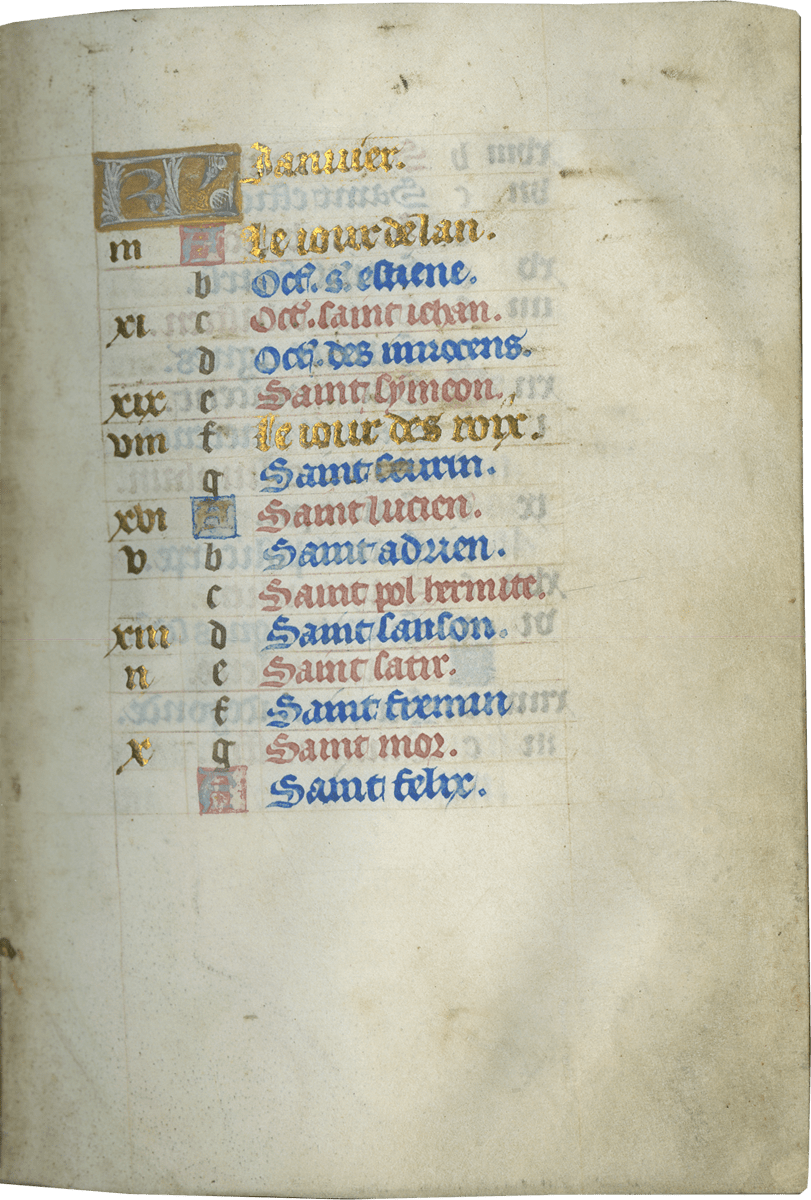 KL Januier.
iii A Le iour de lan.
b Oct. s. estiene.
xi. c Oct. saint iehan.
d Oct. des innocens.
xix e Saint symeon.
viii f Le iour des roix.
g Saint seurin.
xvi A Saint lucien.
v b Saint adrien.
c Saint pol hermite.
xiii d Saint sanson.
ii e Saint satir.
f Saint fremin
x g Saint mor.
A Saint felix.